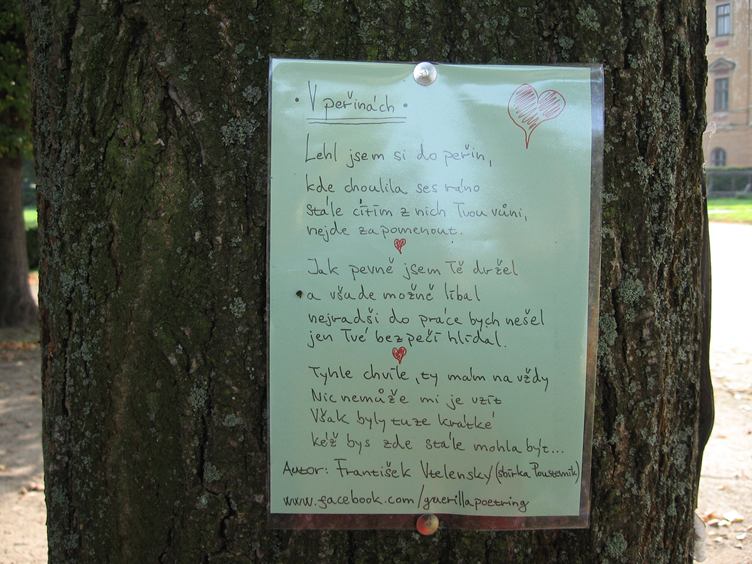 • V peřinách •
Lehl jsem si do peřin,
kde choulila ses ráno
stále cítím z nich Tvou vůni,
nejde zapomenout.
Jak pevně jsem Tě držel
a všude možně líbal
nejradši do práce bych nešel
jen Tvé bezpečí hlídal.
Tyhle chvíle, ty mám na vždy
Nic nemůže mi je vzít
Však byly tuze krátké
kéž bys zde stále mohla být...
Autor: František Vtelensky (sbírka Poustevník)
www.facebook.com/guerillapoetring